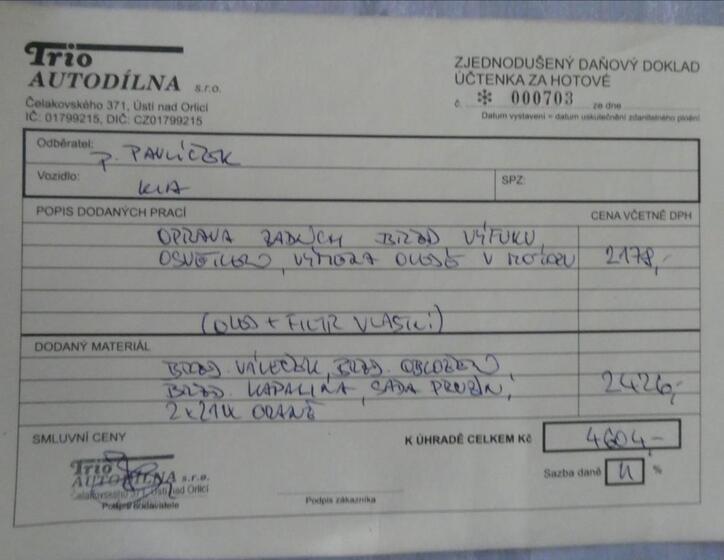 Trio
AUTODÍLNA s.r.o.
Čelakovského 371, Ústí nad Orlicí
IČ: 01799215, DIČ: CZ01799215
ZJEDNODUŠENÝ DAŇOVÝ DOKLAD
ÚČTENKA ZA HOTOVÉ
č. ✻ 000703 ze dne
Datum vystavení = datum uskutečnění zdanitelného plnění
Odběratel: P. PAVLÍČEK
Vozidlo: KIA SPZ:
POPIS DODANÝCH PRACÍ CENA VČETNĚ DPH
OPRAVA ZADNÍCH BRZD VÝFUKU,
OSVĚTLENÍ, VÝMĚNA OLEJE V MOTORU 2178,-
(OLEJ + FILTR VLASTNÍ)
DODANÝ MATERIÁL
BRZD. VÁLEČEK, BRZD. OBLOŽENÍ,
BRZD. KAPALINA, SADA PRUŽIN, 2426,-
2x21W ORANŽ
SMLUVNÍ CENY K ÚHRADĚ CELKEM Kč 4604,-
Sazba daně %
Trio
AUTODÍLNA s.r.o.
Čelakovského 371, Ústí nad Orlicí
Podpis dodavatele
Podpis zákazníka